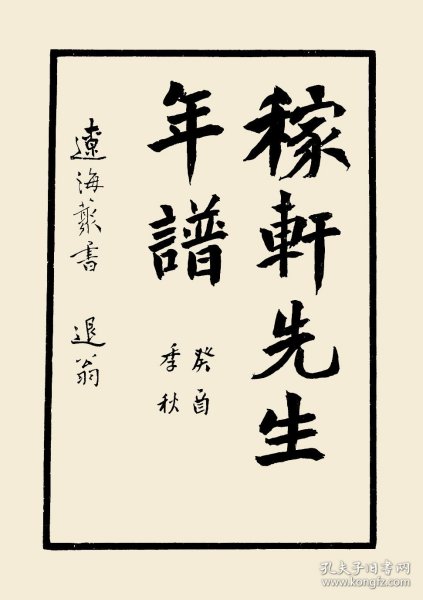 稼軒先生
年譜
癸酉
季秋
遼海叢書 退翁
孔夫子旧书网
www.kongfz.com